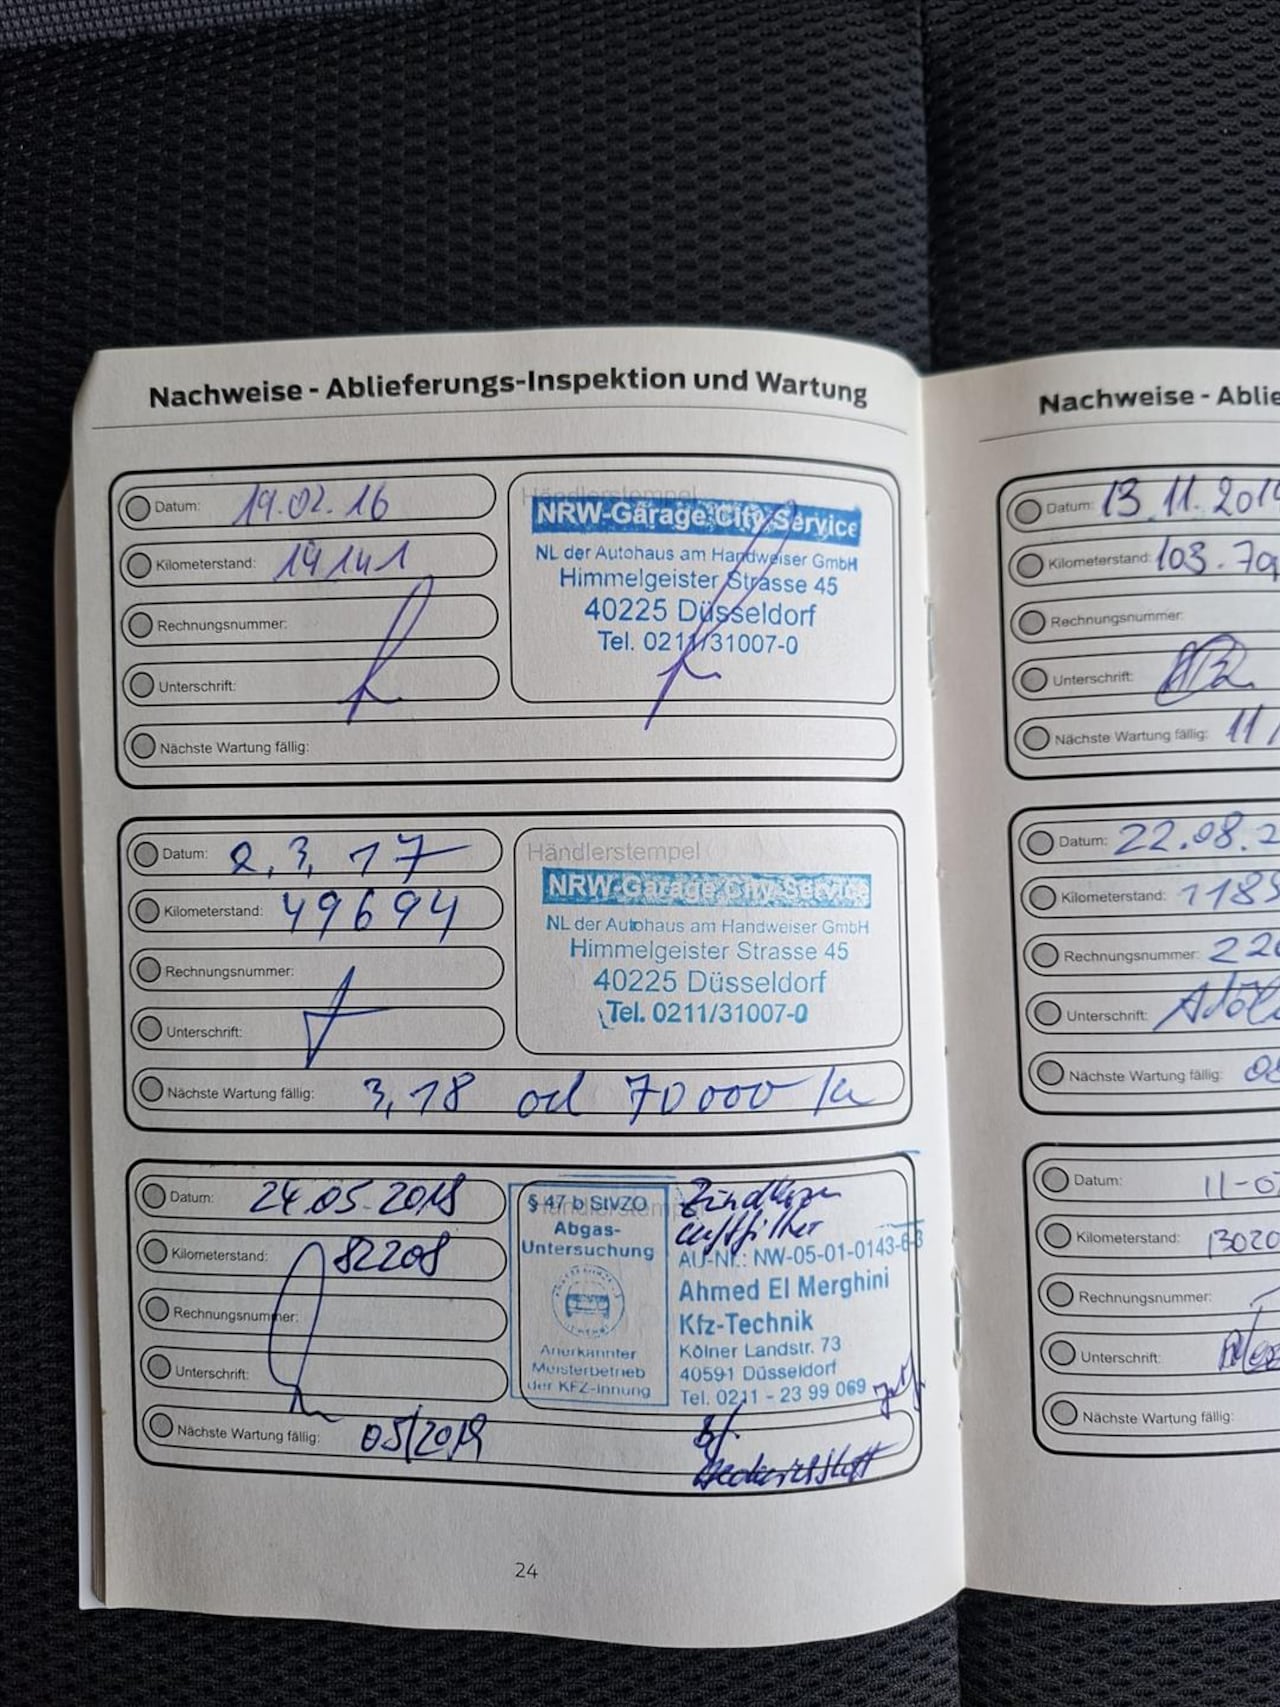 Nachweise - Ablieferungs-Inspektion und Wartung
Datum: 19.02.16
Kilometerstand: 19141
Rechnungsnummer:
Unterschrift:
Nächste Wartung fällig:
Händlerstempel
NRW-Garage City-Service
NL der Autohaus am Handweiser GmbH
Himmelgeister Strasse 45
40225 Düsseldorf
Tel. 0211/31007-0
Datum: 2, 3, 17
Kilometerstand: 49694
Rechnungsnummer:
Unterschrift:
Nächste Wartung fällig: 3,18 od 70000 km
Händlerstempel
NRW-Garage City-Service
NL der Autohaus am Handweiser GmbH
Himmelgeister Strasse 45
40225 Düsseldorf
Tel. 0211/31007-0
Datum: 24.05.2018
Kilometerstand: 82208
Rechnungsnummer:
Unterschrift:
Nächste Wartung fällig: 05/2019
Händlerstempel
§ 47 b StVZO
Abgas-
Untersuchung
Anerkannter
Meisterbetrieb
der KFZ-Innung
Zündkerzen
Luftfilter
AU-Nr.: NW-05-01-0143-6
Ahmed El Merghini
Kfz-Technik
Kölner Landstr. 73
40591 Düsseldorf
Tel. 0211 - 23 99 069
24
Nachweise - Ablie
Datum: 13.11.201
Kilometerstand: 103.79
Rechnungsnummer:
Unterschrift:
Nächste Wartung fällig: 11/
Datum: 22.08.2
Kilometerstand: 1185
Rechnungsnummer: 220
Unterschrift:
Nächste Wartung fällig: 08
Datum: 11-0
Kilometerstand: 13020
Rechnungsnummer:
Unterschrift:
Nächste Wartung fällig: